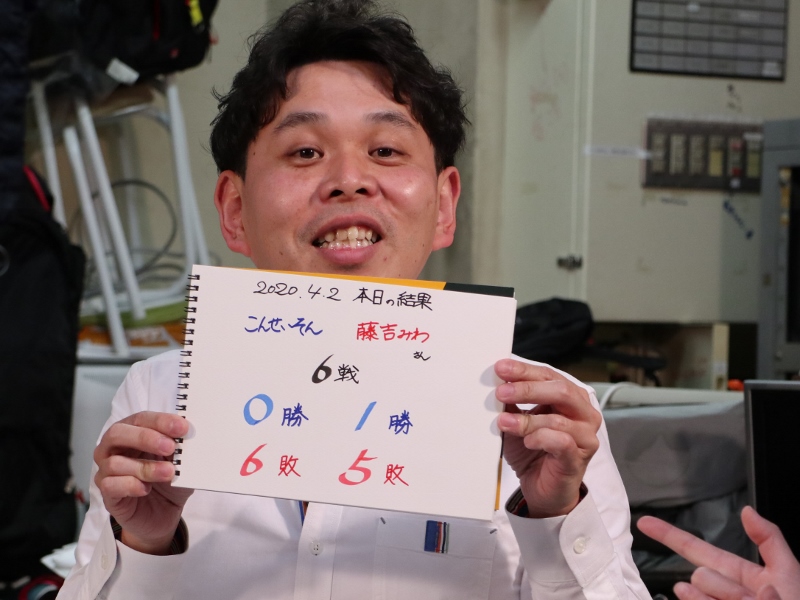 2020.4.2 本日の結果
こんせいそん 藤吉みわ
さん
6戦
0勝 1勝
6敗 5敗